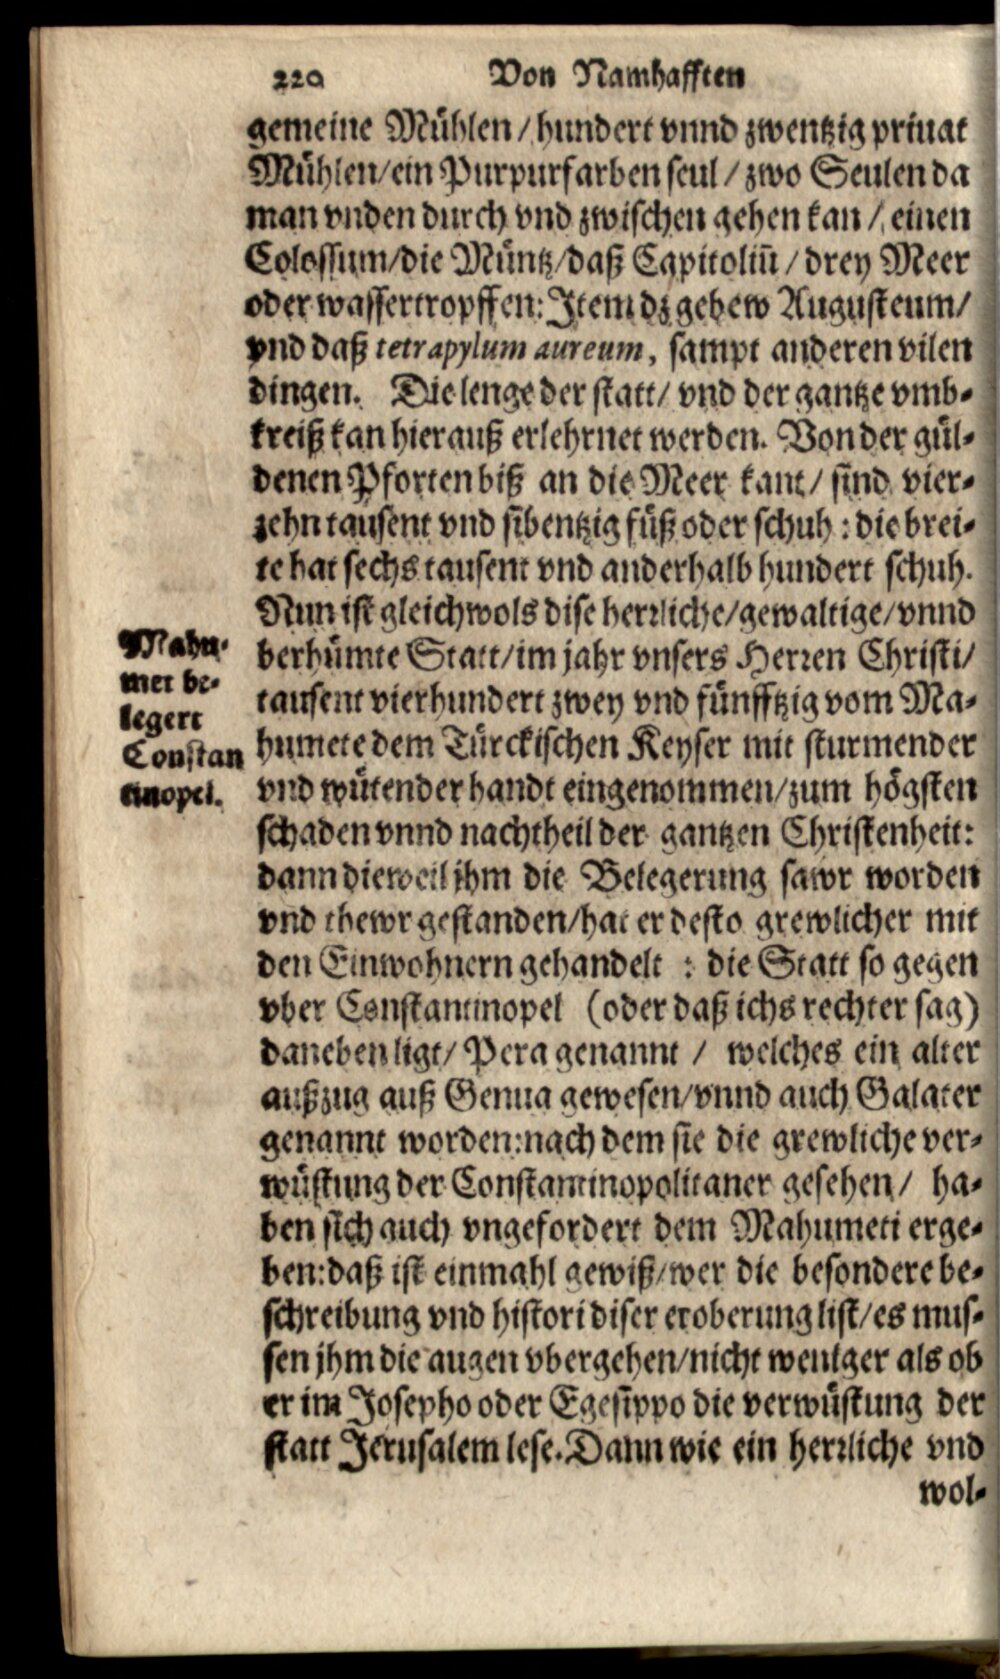 220 Von Namhafften
gemeine Mühlen / hundert vnnd zwentzig priuat
Mühlen/ein Purpurfarben seul / zwo Seulen da
man vnden durch vnd zwischen gehen kan / einen
Colossum/die Müntz/daß Capitoliū / drey Meer
oder wassertropffen: Item dz gebew Augusteum/
vnd daß tetrapylum aureum, sampt anderen vilen
dingen. Die lenge der statt/ vnd der gantze vmb-
kreiß kan hierauß erlehrnet werden. Von der gül-
denen Pforten biß an die Meer kant/ sind vier-
zehn tausent vnd sibentzig füß oder schuh : die brei-
te hat sechs tausent vnd anderhalb hundert schuh.
Nun ist gleichwols dise herrliche/gewaltige/vnnd
berhümte Statt/im jahr vnsers Herren Christi/
tausent vierhundert zwey vnd fünfftzig vom Ma-
humete dem Türckischen Keyser mit sturmender
vnd wütender handt eingenommen/zum högsten
schaden vnnd nachtheil der gantzen Christenheit:
dann dieweil jhm die Belegerung sawr worden
vnd thewr gestanden/hat er desto grewlicher mit
den Einwohnern gehandelt : die Statt so gegen
vber Constantinopel (oder daß ichs rechter sag)
daneben ligt/ Pera genannt / welches ein alter
außzug auß Genua gewesen/vnnd auch Galater
genannt worden:nach dem sie die grewliche ver-
wüstung der Constantinopolitaner gesehen/ ha-
ben sich auch vngefordert dem Mahumeti erge-
ben:daß ist einmahl gewiß/wer die besondere be-
schreibung vnd histori diser eroberung list/es mus-
sen jhm die augen vbergehen/nicht weniger als ob
er im Josepho oder Egesippo die verwüstung der
statt Jerusalem lese. Dann wie ein herrliche vnd
wol-
Mahu-
met be-
legert
Constan
tinopel.